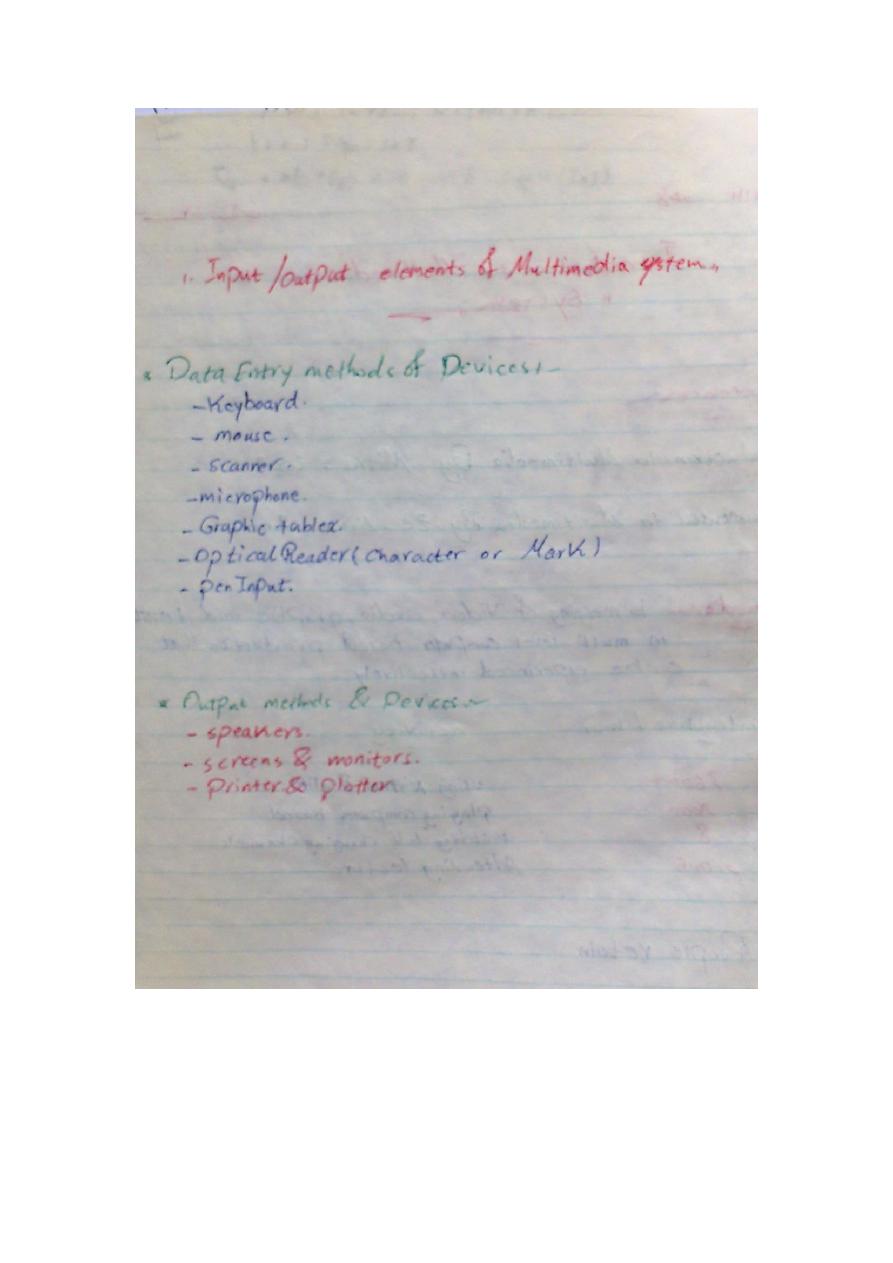 ". Input/output elements of Multimedia system."
* Data Entry methods of Devices:-
- Keyboard.
- mouse.
- scanner.
- microphone.
- Graphic tablex.
- Optical Reader (character or Mark)
- pen Input.
* Output methods & Devices:-
- speakers.
- screens & monitors.
- Printer & plotter